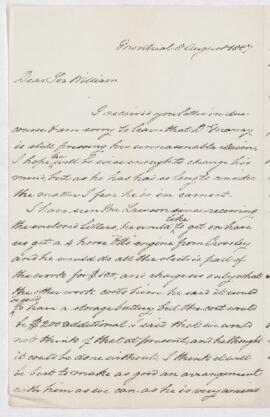 Montreal 8 August 188
Dear Sir William
I received your letter in due
course & am sorry to learn that Dr
is still pressing his unreasonable
I hope he will be wise enough to change his
mind, but as he has had so long to consider
the matter I fear he is in earnest.
I have seen Mr Lawson since receiving
the enclosed letters, he would like to get or have
us get a 4 horse engine from Crossley
and he would do all the electric part of
the work for $ and charge us only what
the other work costs him, he said it would
be good
to have a storage battery, but the cost would
be $200 additional. I said that we would
not think of that at present, and he thought
it could be done without. I think it will
be best to make as good an arrangement
with him as we can, as he is very anxious